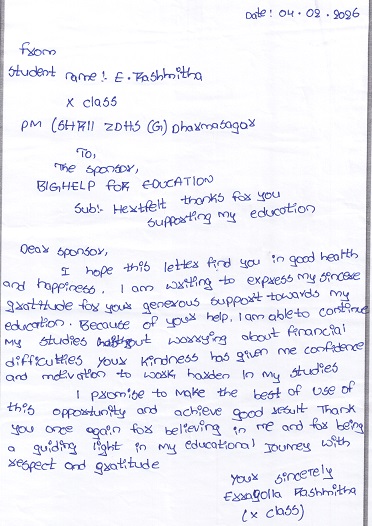 Date: 04.02.2026
From
Student name:- E. Rashmitha
X class
PM (SHRI) ZPHS (G) Dharmasagar
To,
The sponsor,
BIGHELP FOR EDUCATION
Sub:- Hextfelt thanks for you
supporting my education
Dear sponsor,
I hope this letter find you in good health
and happiness. I am writing to express my sincere
gratitude for your generous support towards my
education. Because of your help, I am able to continue
my studies without worrying about financial
difficulties your kindness has given me confidence
and motivation to work harder in my studies
I promise to make the best of use of
this opportunity and achieve good result Thank
you once again for believing in me and for being
a guiding light in my educational Journey with
respect and gratitude
your sincerely
Erragolla Rashmitha
(X class)